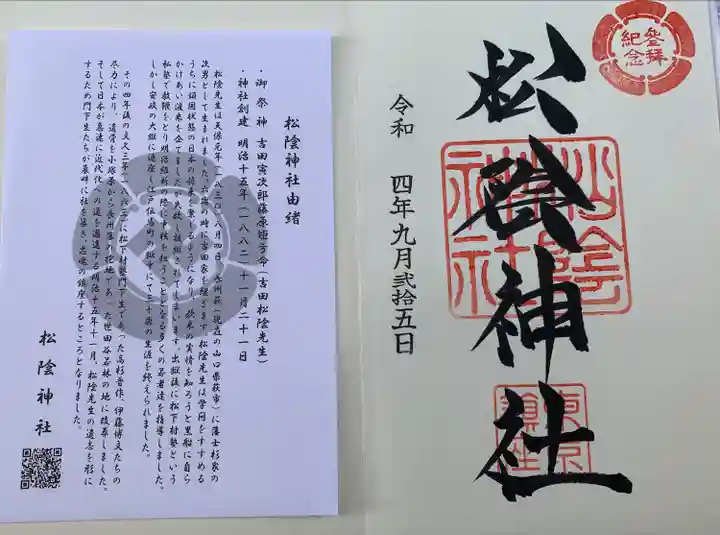 参拝
紀念
松陰神社
令和 四年九月弐拾五日
松陰神社
松陰神社由緒
・御祭神 吉田寅次郎藤原矩方命(吉田松陰先生)
・神社創建 明治十五年(一八八二)十一月二十一日
松陰先生は天保元年(一八三〇)八月四日、長州萩(現在の山口県萩市)に藩士杉家の
次男として生まれました。六歳の時に吉田家を継ぎます。松陰先生は学問をすすめる
うちに鎖国状態の日本の将来を案じるようになり、欧米の実情を知ろうと黒船に自ら
かけあい渡米を企てましたが失敗し捕縛されてしまいます。出獄後に松下村塾という
私塾で教鞭をとり、明治維新の際に中核を担うこととなる多くの若者達を指導しました。
しかし安政の大獄に連座し江戸伝馬町の獄中にて三十歳の生涯を終えられました。
その四年後の文久三年(一八六三)に松下村塾門下生であった高杉晋作、伊藤博文たちの
尽力により、遺骨を小塚原から長州藩の拠地であった世田谷若林の地に改葬しました。
そして日本が急速に近代化への道を邁進する明治十五年十一月、松陰先生の遺志を形に
するため門下生たちが墓畔に社を築き、忠魂の鎮座するところとなりました。
松陰神社